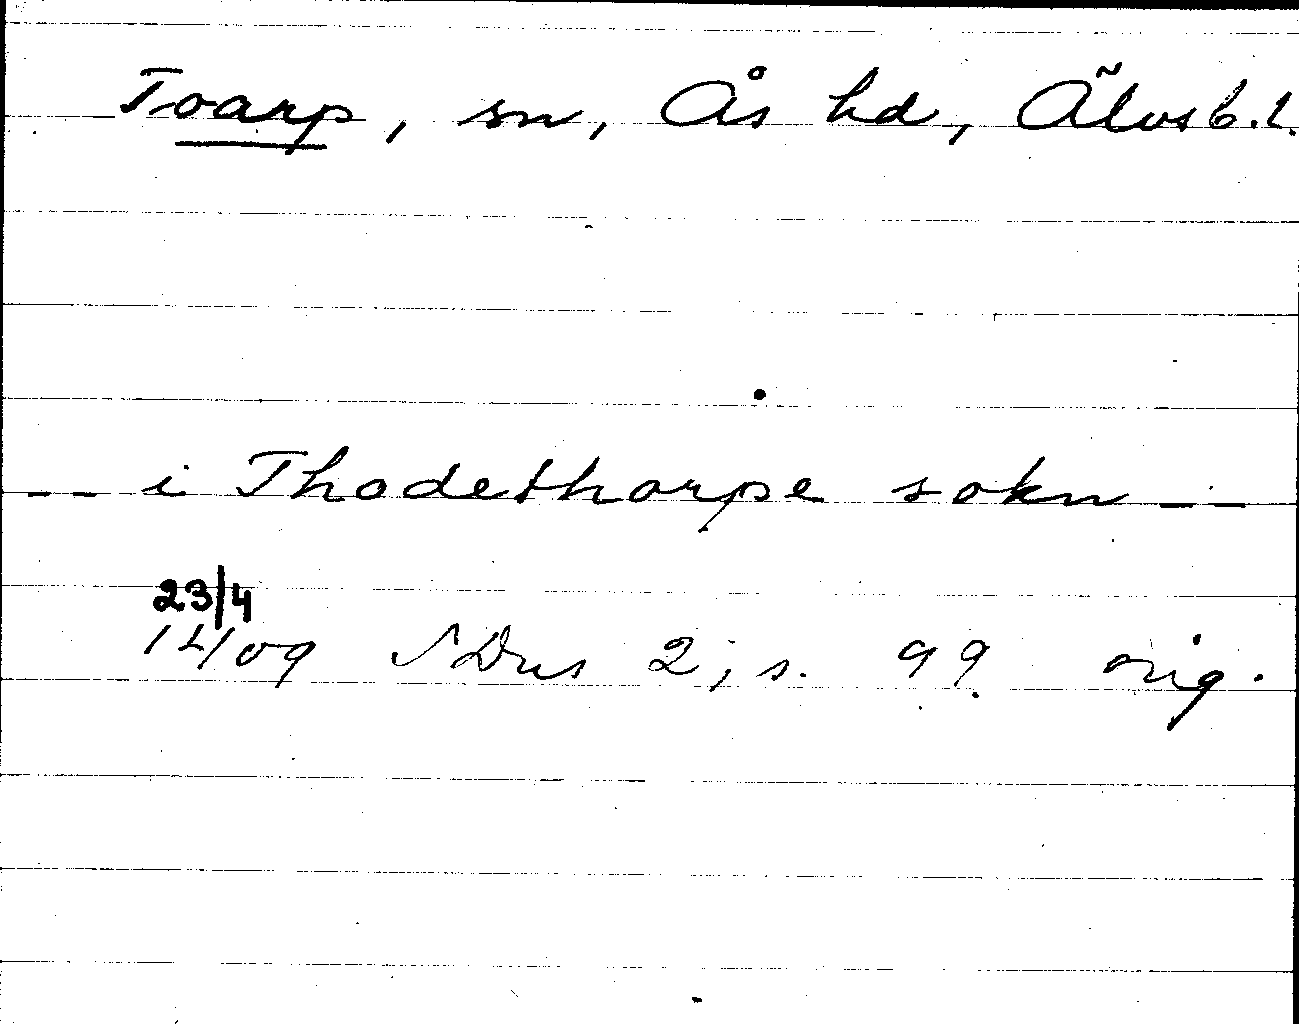 Toarp, sn, Ås hd, Älvsb. l.
-- i Thodethorpe sokn --
23/4
1409 SDns 2, s. 99 orig.